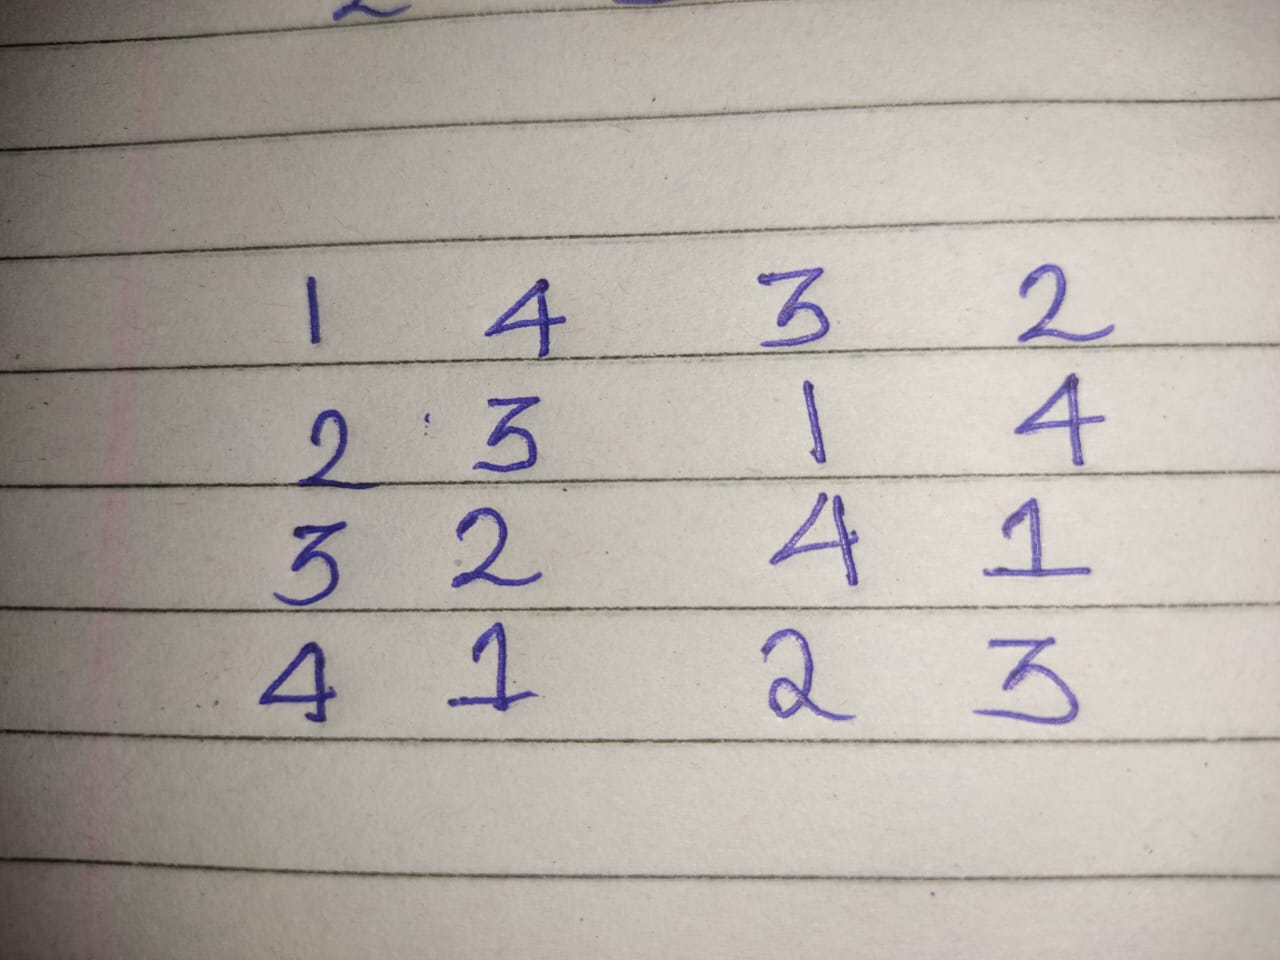 1 4 3 2
2 3 1 4
3 2 4 1
4 1 2 3